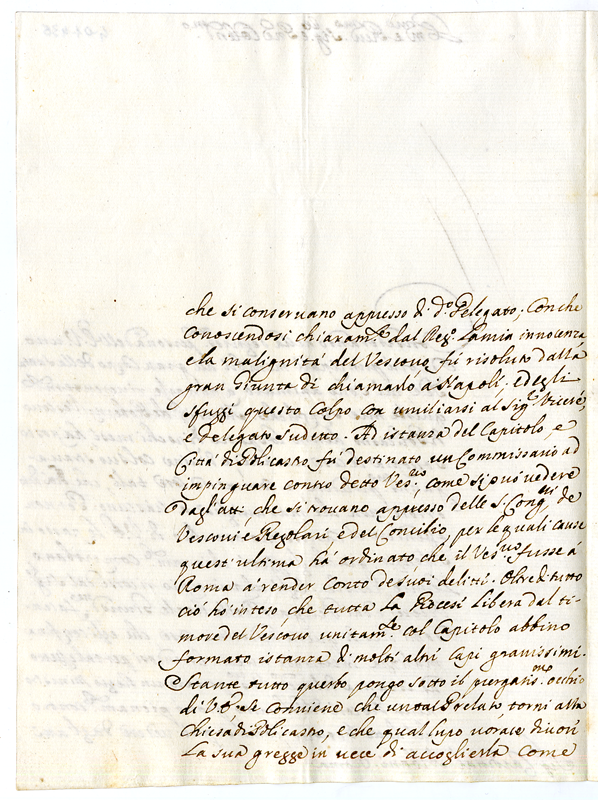 che si conservano appresso di d.º Delegato; Con che
conoscendosi chiaram.te dal Reg.º la mia innocenza
e la malignità del Vescovo, fú risoluto dalla
gran Giunta di chiamarlo a Napoli, ed egli
sfuggi questo Colpo con umiliarsi al Sig.r Viceré,
e delegato sudetto. Ad istanza del Capitolo, e
Città di Policastro fú destinato un Commissario ad
impinguare contro detto Ves.vo, come si può vedere
dagl'atti che si trovano appresso delle S. Cong.ni de
Vescovi é Regolari, e del Concilio, per le quali cause
quest'ultima há ordinato che il Ves.vo fusse á
Roma á render Conto de suoi delitti. Oltre di tutto
ció hó inteso, che tutta la Diocesi libera dal ti-
more del Vescovo unitam.te col Capitolo abbino
formato istanza di molti altri Capi gravissimi.
Stante tutto questo, pongo sotto il purgatis.mo occhio
di se conviene che un tal Prelato torni alla
Chiesa di Policastro, e che qual lupo vorace divori
la sua gregge in vece di accoglierla come